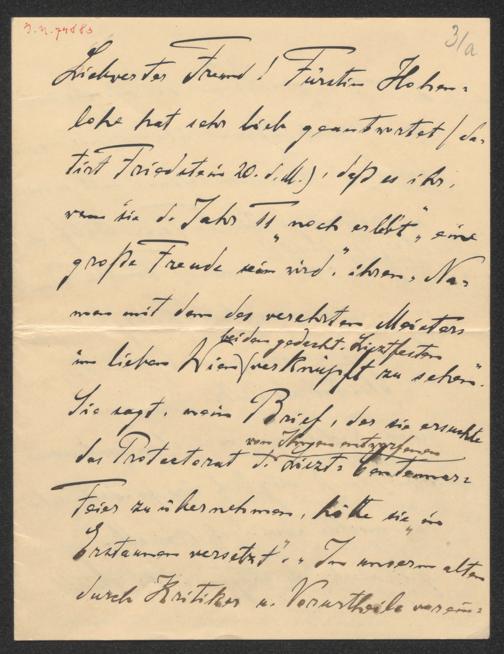 I.N. 74683
31a
Liebwerter Freund! Fürstin Hohen=
lohe hat sehr lieb geantwortet (da-
tirt Friedstein 20. d. M.), daß es ihr,
wenn sie d. Jahr 11 „noch erlebt", „eine
große Freude sein wird", ihren Na-
men mit dem des verehrten Meisters
bei den gedacht. Lisztfesten
im lieben Wien verknüpft zu sehen".
Sie sagt, mein Brief, der sie ersuchte
von Ihnen entworfenen
das Protectorat d. Liszt= Centennar=
Feier zu übernehmen, hätte sie „in
Erstaunen versetzt". „In unserm alten
durch Kritiker u. Vorurtheile verein=